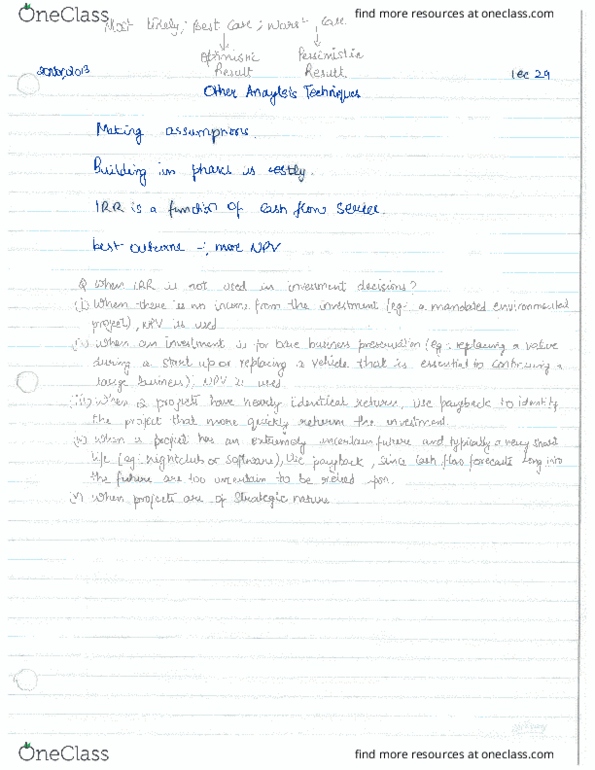 OneClass
find more resources at oneclass.com
Most Likely; Best Case; Worst Case
Optimistic Pessimistic
Result Result
2013 lec 29
Other Anaylsis Techniques
Making assumptions.
Building in phases is costly.
IRR is a function of cash flow series.
best outcome → more NPV
Q When IRR is not used in investment decisions?
(i) When there is no income from the investment (eg: a mandated environmental
project), NPV is used
When an investment is for business (eg: replacing a valve
during a start up or replacing a vehicle that is essential to continuing a
large business); NPV is used
(iii) When 2 projects have nearly identical returns, use payback to identify
the project that more quickly returns the investment.
When a project has an extremely uncertain future and typically a very short
life (eg: nightclub or software), use payback, since cash flow forecasts long into
the future are too uncertain to be relied upon.
(v) When projects are of strategic nature
OneClass
find more resources at oneclass.com